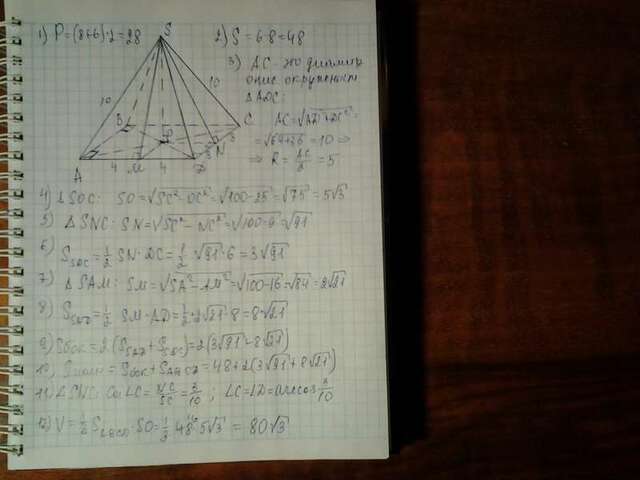 1) P=(8+6)·2=28
2) S = 6·8=48
3) AC - это диаметр
опис окружности
△ADC:
AC=√AD²+DC²=
=√64+36=10 ⇒
⇒ R=AC/2=5
S
10
10
B
C
O
3
N
3
A
4
M
4
D
4) △SOC: SO=√SC²-OC²=√100-25=√75=5√3
5) △SNC: SN=√SC²-NC²=√100-9=√91
6) S SDC=1/2 SN·DC=1/2·√91·6=3√91
7) △SAM: SM=√SA²-AM²=√100-16=√84=2√21
8) S SAD=1/2 SM·AD=1/2·2√21·8=8√21
9) Sбок=2(S SAD+S SDC)=2(3√91+8√21)
10) Sполн=Sбок+S ABCD=48+2(3√91+8√21)
11) △SNC: Cos∠C=NC/SC=3/10; ∠C=∠D=arccos 3/10
12) V=1/3 S ABCD·SO=1/3 48·5√3=80√3